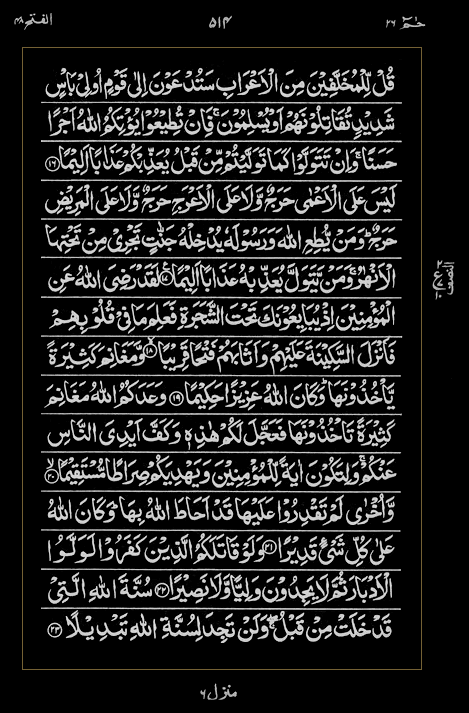 حٰمٓ ٢٦ ٥١٤ الفتح ٤٨
قُلْ لِّلْمُخَلَّفِيْنَ مِنَ الْاَعْرَابِ سَتُدْعَوْنَ اِلٰى قَوْمٍ اُولِيْ بَاْسٍ
شَدِيْدٍ تُقَاتِلُوْنَهُمْ اَوْ يُسْلِمُوْنَ ۚ فَاِنْ تُطِيْعُوْا يُؤْتِكُمُ اللّٰهُ اَجْرًا
حَسَنًا ۚ وَاِنْ تَتَوَلَّوْا كَمَا تَوَلَّيْتُمْ مِّنْ قَبْلُ يُعَذِّبْكُمْ عَذَابًا اَلِيْمًا ۝١٦
لَيْسَ عَلَى الْاَعْمٰى حَرَجٌ وَّلَا عَلَى الْاَعْرَجِ حَرَجٌ وَّلَا عَلَى الْمَرِيْضِ
حَرَجٌ ؕ وَمَنْ يُّطِعِ اللّٰهَ وَرَسُوْلَهٗ يُدْخِلْهُ جَنّٰتٍ تَجْرِيْ مِنْ تَحْتِهَا
الْاَنْهٰرُ ۚ وَمَنْ يَّتَوَلَّ يُعَذِّبْهُ عَذَابًا اَلِيْمًا ۝١٧ لَقَدْ رَضِيَ اللّٰهُ عَنِ
الْمُؤْمِنِيْنَ اِذْ يُبَايِعُوْنَكَ تَحْتَ الشَّجَرَةِ فَعَلِمَ مَا فِيْ قُلُوْبِهِمْ
فَاَنْزَلَ السَّكِيْنَةَ عَلَيْهِمْ وَاَثَابَهُمْ فَتْحًا قَرِيْبًا ۝١٨ وَّمَغَانِمَ كَثِيْرَةً
يَّاْخُذُوْنَهَا ؕ وَكَانَ اللّٰهُ عَزِيْزًا حَكِيْمًا ۝١٩ وَعَدَكُمُ اللّٰهُ مَغَانِمَ
كَثِيْرَةً تَاْخُذُوْنَهَا فَعَجَّلَ لَكُمْ هٰذِهٖ وَكَفَّ اَيْدِيَ النَّاسِ
عَنْكُمْ ۚ وَلِتَكُوْنَ اٰيَةً لِّلْمُؤْمِنِيْنَ وَيَهْدِيَكُمْ صِرَاطًا مُّسْتَقِيْمًا ۝٢٠
وَّاُخْرٰى لَمْ تَقْدِرُوْا عَلَيْهَا قَدْ اَحَاطَ اللّٰهُ بِهَا ؕ وَكَانَ اللّٰهُ
عَلٰى كُلِّ شَيْءٍ قَدِيْرًا ۝٢١ وَلَوْ قَاتَلَكُمُ الَّذِيْنَ كَفَرُوْا لَوَلَّوُا
الْاَدْبَارَ ثُمَّ لَا يَجِدُوْنَ وَلِيًّا وَّلَا نَصِيْرًا ۝٢٢ سُنَّةَ اللّٰهِ الَّتِيْ
قَدْ خَلَتْ مِنْ قَبْلُ ۖ وَلَنْ تَجِدَ لِسُنَّةِ اللّٰهِ تَبْدِيْلًا ۝٢٣
منزل ٦